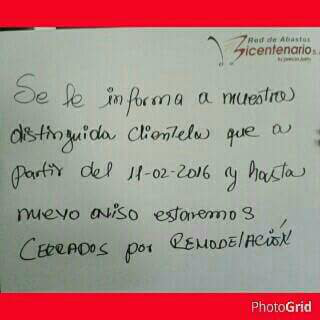 Red de Abastos
Bicentenario S.A.
tu precio justo
Se le informa a nuestra
distinguida clientela que a
partir del 11-02-2016 y hasta
nuevo aviso estaremos
CERRADOS por REMODELACIÓN
PhotoGrid